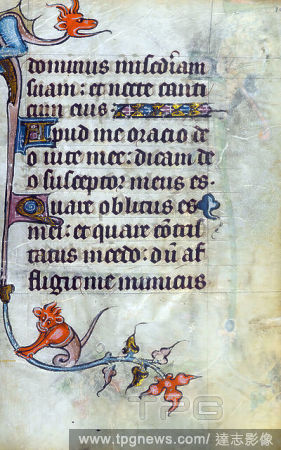 dominus misediam
suam: et nocte canti
cum eius
Apud me oracio de
o vite mee: dicam de
o susceptor meus es.
Quare oblitus es
mei: et quare contris
tatus incedo: dũ af
fligit me inimicus
TPG
www.tpgnews.com/ 達志影像